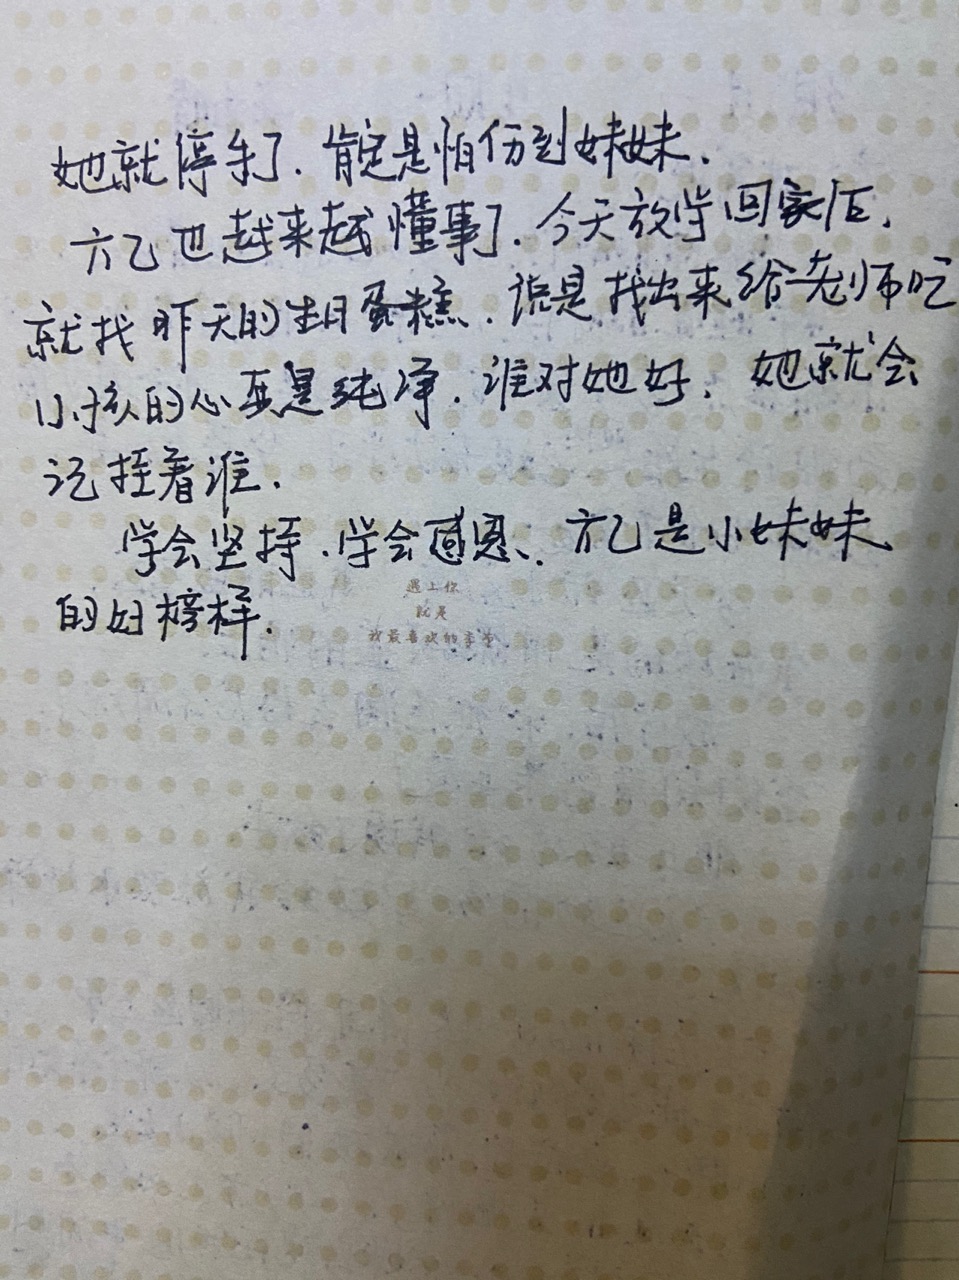 她就停车了．肯定是怕伤到妹妹．
六乙也越来越懂事了．今天放学回家后．
就找昨天的生日蛋糕．说是找出来给老师吃
小孩的心真是纯净．谁对她好．她就会
记挂着谁．
学会坚持．学会感恩、．六乙是小妹妹
的好榜样．
遇上你
就是
我最喜欢的季节